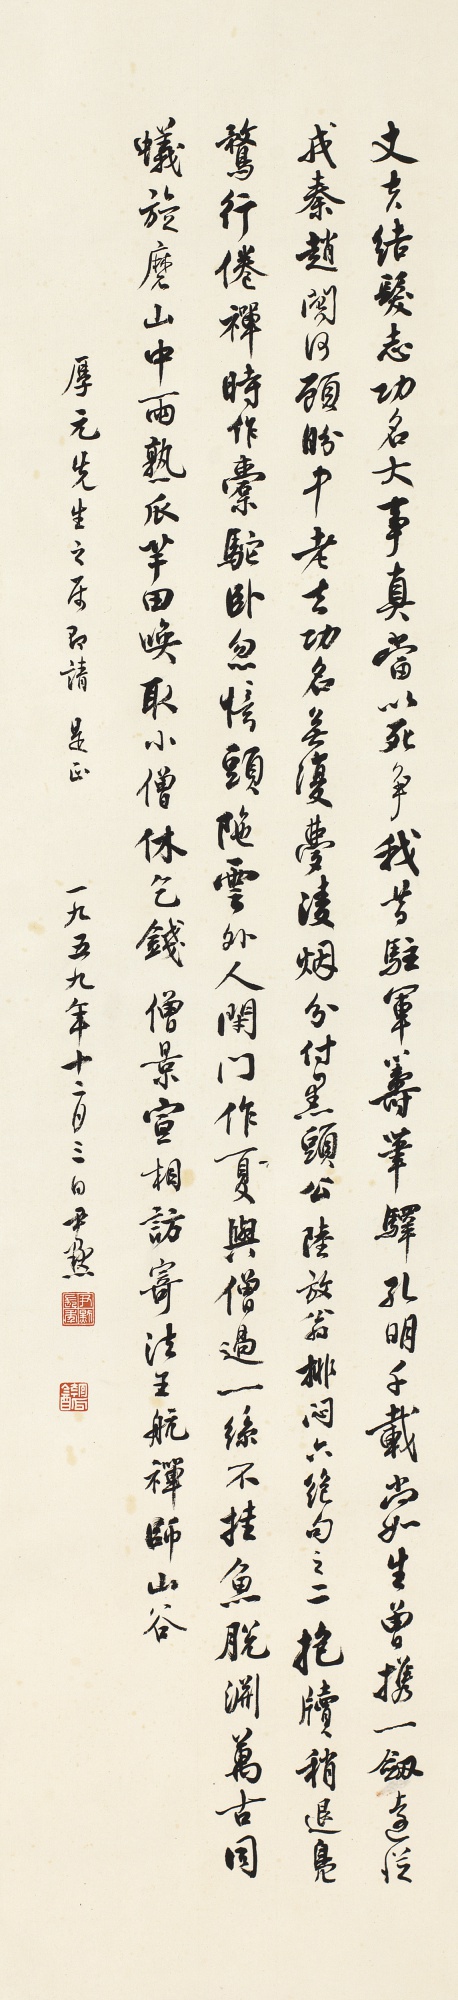 丈夫結髮志功名大事真當以死爭我昔駐軍籌筆驛孔明千載尚如生曾攜一劍遠從
戎秦趙關河顧盼中老去功名無復夢凌烟分付黑頭公陸放翁排悶六絕句之二抱牘稍退鳧
鶩行倦禪時作橐駝臥忽憶頭陁雲外人閉門作夏與僧過一絲不挂魚脫淵萬古同
蟻旋磨山中雨熟瓜芋田喚取小僧休乞錢 僧景宣相訪寄法王航禪師山谷
厚元先生之屬即請 是正 一九五九年十二月三日尹默